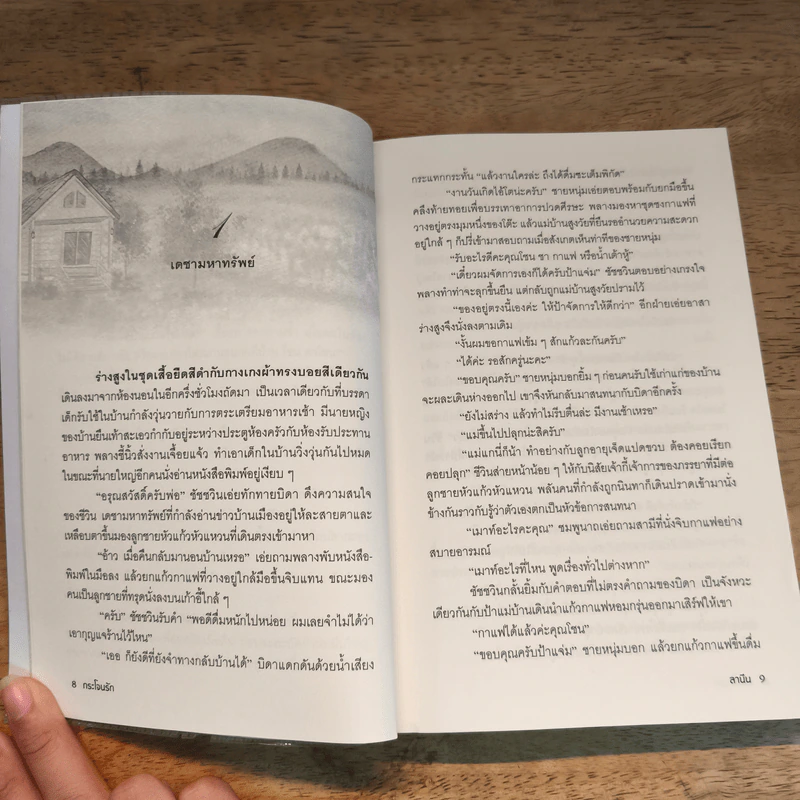 1
เดชามหาทรัพย์
ร่างสูงในชุดเสื้อยืดสีดำกับกางเกงผ้าทรงบอยสีเดียวกัน
เดินลงมาจากห้องนอนในอีกครึ่งชั่วโมงถัดมา เป็นเวลาเดียวกับที่บรรดา
เด็กรับใช้ในบ้านกำลังวุ่นวายกับการตระเตรียมอาหารเช้า มีนายหญิง
ของบ้านยืนเท้าสะเอวกำกับอยู่ระหว่างประตูห้องครัวกับห้องรับประทาน
อาหาร พลางชี้นิ้วสั่งงานเจื้อยแจ้ว ทำเอาเด็กในบ้านวิ่งวุ่นกันไปหมด
ในขณะที่นายใหญ่อีกคนนั่งอ่านหนังสือพิมพ์อยู่เงียบ ๆ
“อรุณสวัสดิ์ครับพ่อ” ชัชชวินเอ่ยทักทายบิดา ดึงความสนใจ
ของชีวิน เดชามหาทรัพย์ที่กำลังอ่านข่าวบ้านเมืองอยู่ให้ละสายตาและ
เหลือบตาขึ้นมองลูกชายหัวแก้วหัวแหวนที่เดินตรงเข้ามาหา
“อ้าว เมื่อคืนกลับมานอนบ้านเหรอ” เอ่ยถามพลางพับหนังสือ-
พิมพ์ในมือลง แล้วยกแก้วกาแฟที่วางอยู่ใกล้มือขึ้นจิบแทน ขณะมอง
คนเป็นลูกชายที่ทรุดนั่งลงบนเก้าอี้ใกล้ ๆ
“ครับ” ชัชชวินรับคำ “พอดีดื่มหนักไปหน่อย ผมเลยจำไม่ได้ว่า
เอากุญแจร้านไว้ไหน”
“เออ ก็ยังดีที่ยังจำทางกลับบ้านได้” บิดาแดกดันด้วยน้ำเสียง
8 กระโจนรัก
กระแทกกระทั้น “แล้วงานใครล่ะ ถึงได้ดื่มซะเต็มพิกัด”
“งานวันเกิดไอ้โตน่ะครับ” ชายหนุ่มเอ่ยตอบพร้อมกับยกมือขึ้น
คลึงท้ายทอยเพื่อบรรเทาอาการปวดศีรษะ พลางมองหาชุดชงกาแฟที่
วางอยู่ตรงมุมหนึ่งของโต๊ะ แล้วแม่บ้านสูงวัยที่ยืนรออำนวยความสะดวก
อยู่ใกล้ ๆ ก็ปรี่เข้ามาสอบถามเมื่อสังเกตเห็นท่าทีของชายหนุ่ม
“รับอะไรดีคะคุณโซน ชา กาแฟ หรือน้ำเต้าหู้”
“เดี๋ยวผมจัดการเองก็ได้ครับป้าแจ่ม” ชัชชวินตอบอย่างเกรงใจ
พลางทำท่าจะลุกขึ้นยืน แต่กลับถูกแม่บ้านสูงวัยปรามไว้
“ของอยู่ตรงนี้เองค่ะ ให้ป้าจัดการให้ดีกว่า” อีกฝ่ายเอ่ยอาสา
ร่างสูงจึงนั่งลงตามเดิม
“งั้นผมขอกาแฟเข้ม ๆ สักแก้วละกันครับ”
“ได้ค่ะ รอสักครู่นะคะ”
“ขอบคุณครับ” ชายหนุ่มบอกยิ้ม ๆ ก่อนคนรับใช้เก่าแก่ของบ้าน
จะผละเดินห่างออกไป เขาจึงหันกลับมาสนทนากับบิดาอีกครั้ง
“ยังไม่สร่าง แล้วทำไมรีบตื่นล่ะ มีงานเช้าเหรอ”
“แม่ขึ้นไปปลุกน่ะสิครับ”
“แม่แกนี่ก็น้า ทำอย่างกับลูกอายุเจ็ดแปดขวบ ต้องคอยเรียก
คอยปลุก” ชีวินส่ายหน้าน้อย ๆ ให้กับนิสัยเจ้ากี้เจ้าการของภรรยาที่มีต่อ
ลูกชายหัวแก้วหัวแหวน พลันคนที่กำลังถูกนินทาก็เดินปราดเข้ามานั่ง
ข้างกันราวกับรู้ว่าตัวเองตกเป็นหัวข้อการสนทนา
“เมาท์อะไรคะคุณ” ชมพูนาถเอ่ยถามสามีที่นั่งจิบกาแฟอย่าง
สบายอารมณ์
“เมาท์อะไรที่ไหน พูดเรื่องทั่วไปต่างหาก”
ชัชชวินกลั้นยิ้มกับคำตอบที่ไม่ตรงคำถามของบิดา เป็นจังหวะ
เดียวกันกับป้าแม่บ้านเดินนำแก้วกาแฟหอมกรุ่นออกมาเสิร์ฟให้เขา
“กาแฟได้แล้วค่ะคุณโซน”
“ขอบคุณครับป้าแจ่ม” ชายหนุ่มบอก แล้วยกแก้วกาแฟขึ้นดื่ม
สานฝัน 9